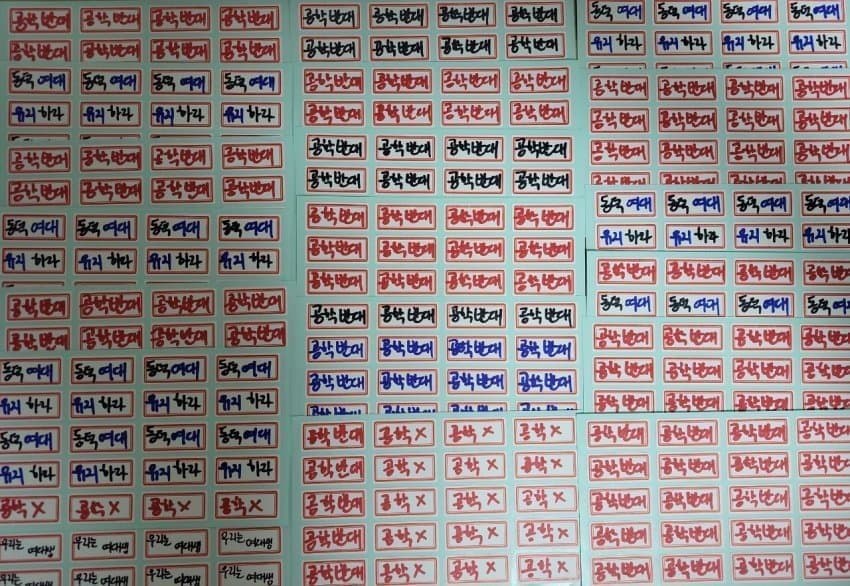 공학반대 공학반대 공학반대 공학반대
공학반대 공학반대 공학반대 공학반대
동덕 여대 동덕 여대 동덕 여대 동덕 여대
유지 하라 유지 하라 유지 하라 유지 하라
공학반대 공학반대 공학반대 공학반대
공학반대 공학반대 공학반대 공학반대
동덕 여대 동덕 여대 동덕 여대 동덕 여대
유지 하라 유지 하라 유지 하라 유지 하라
공학반대 공학반대 공학반대 공학반대
공학반대 공학반대 공학반대 공학반대
동덕 여대 동덕 여대 동덕 여대 동덕 여대
유지 하라 유지 하라 유지 하라 유지 하라
동덕 여대 동덕 여대 동덕 여대 동덕 여대
유지 하라 유지 하라 유지 하라 유지 하라
공학 X 공학 X 공학 X 공학 X
우리는 여대생 우리는 여대생 우리는 여대생 우리는 여대생
우리는 여대생 우리는 여대생 우리는 여대생 우리는 여대생
공학반대 공학반대 공학반대 공학반대
공학반대 공학반대 공학반대 공학반대
공학반대 공학반대 공학반대 공학반대
공학반대 공학반대 공학반대 공학반대
공학반대 공학반대 공학반대 공학반대
공학반대 공학반대 공학반대 공학반대
공학반대 공학반대 공학반대 공학반대
공학반대 공학반대 공학반대 공학반대
공학반대 공학반대 공학반대 공학반대
공학반대 공학반대 공학반대 공학반대
공학반대 공학반대 공학반대 공학반대
공학반대 공학반대 공학반대 공학반대
공학반대 공학반대 공학반대 공학반대
공학반대 공학 X 공학 X 공학 X
공학반대 공학 X 공학 X 공학 X
공학반대 공학 X 공학 X 공학 X
공학반대 공학 X 공학 X 공학 X
공학반대 공학 X 공학 X 공학 X
동덕 여대 동덕 여대 동덕 여대 동덕 여대
유지 하라 유지 하라 유지 하라 유지 하라
공학반대 공학반대 공학반대 공학반대
공학반대 공학반대 공학반대 공학반대
공학반대 공학반대 공학반대 공학반대
공학반대 공학반대 공학반대 공학반대
동덕 여대 동덕 여대 동덕 여대 동덕 여대
유지 하라 유지 하라 유지 하라 유지 하라
공학반대 공학반대 공학반대 공학반대
동덕 여대 동덕 여대 동덕 여대 동덕 여대
공학반대 공학반대 공학반대 공학반대
공학반대 공학반대 공학반대 공학반대
공학반대 공학반대 공학반대 공학반대
공학반대 공학반대 공학반대 공학반대
공학반대 공학반대 공학반대 공학반대
공학반대 공학반대 공학반대 공학반대
공학반대 공학반대 공학반대 공학반대
공학반대 공학반대 공학반대 공학반대